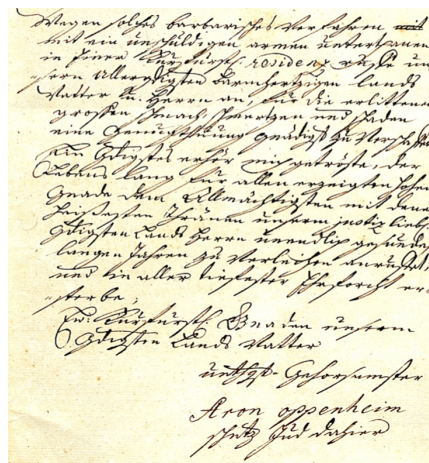 Wegen solches barbarisches Verfahren mit
mit ein unschuldigen armen unterthanen
in seiner Kurfürstl. residenz ruffe un
sern Allergdigsten barmhertzigen lands
Vatter u. Herrn an, für die erlittene
grossen schmach, schmertzen und schaden
eine Genugthuung gnädigst zu verschaffen
Ein gdigstes erhör mich getröste, der
Lebens lang für allen erzeigten hohen
Gnade dem Allmächtigsten mit denen
heißesten Thränen unserm justiz liebe
gdigsten Lands Herrn unendlich gesunde
langen Jahren zu verleihen anruffe,
und in aller tiefester Ehrforcht er
sterbe,
Ew. Kurfürstl. Gnaden unserm
gdigsten Lands Vatter
unthgst- Gehorsamster
Aron oppenheim
schutz Jud dahier